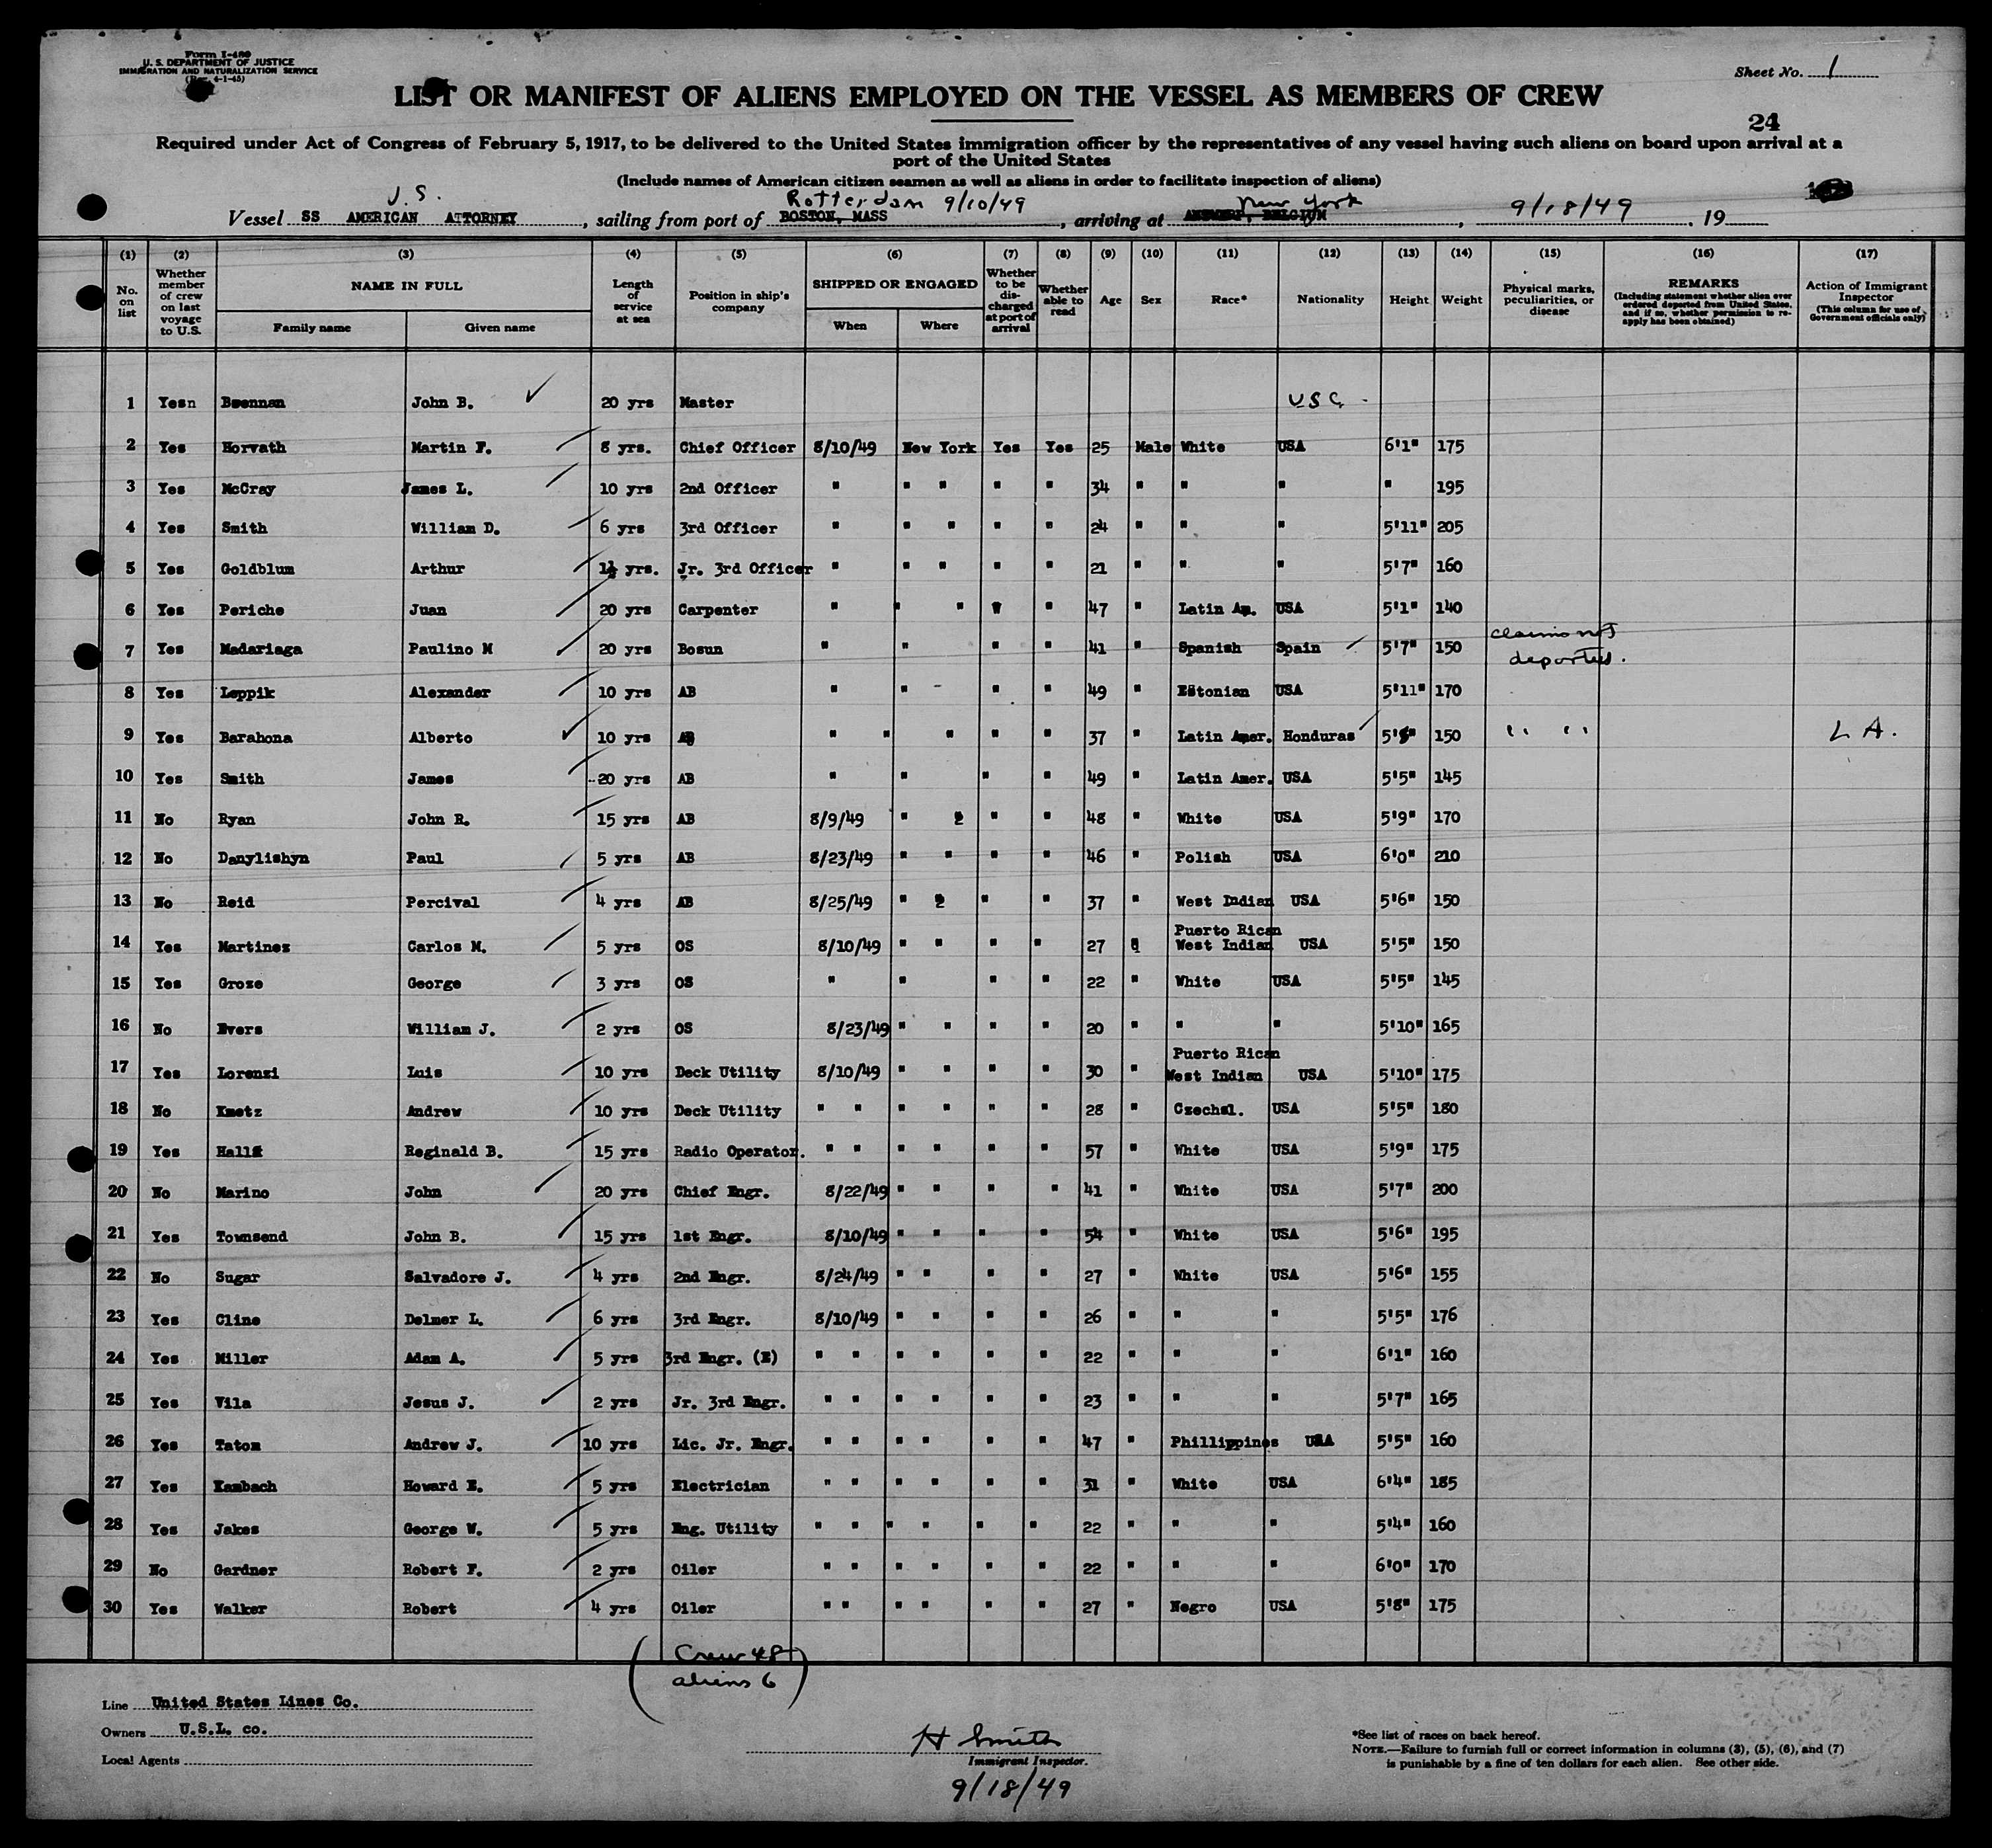 Form I-489
U. S. DEPARTMENT OF JUSTICE
IMMIGRATION AND NATURALIZATION SERVICE
(Rev. 4-1-45)
Sheet No. 1
LIST OR MANIFEST OF ALIENS EMPLOYED ON THE VESSEL AS MEMBERS OF CREW
24
Required under Act of Congress of February 5, 1917, to be delivered to the United States immigration officer by the representatives of any vessel having such aliens on board upon arrival at a
port of the United States
(Include names of American citizen seamen as well as aliens in order to facilitate inspection of aliens)
U.S. Rotterdam 9/10/49 New York
Vessel SS AMERICAN ATTORNEY, sailing from port of BOSTON, MASS, arriving at ANTWERP, BELGIUM, 9/18/49, 19
(1) (2) (3) (4) (5) (6) (7) (8) (9) (10) (11) (12) (13) (14) (15) (16) (17)
No. on list
Whether member of crew on last voyage to U.S.
NAME IN FULL
Family name
Given name
Length of service at sea
Position in ship's company
SHIPPED OR ENGAGED
When
Where
Whether to be discharged at port of arrival
Whether able to read
Age
Sex
Race*
Nationality
Height
Weight
Physical marks, peculiarities, or disease
REMARKS
(Including statement whether alien ever ordered deported from United States, and if so, whether permission to reapply has been obtained)
Action of Immigrant Inspector
(This column for use of Government officials only)
1 Yesn Brennan John B. ✓ 20 yrs Master USC
2 Yes Horvath Martin F. 8 yrs. Chief Officer 8/10/49 New York Yes Yes 25 Male White USA 6'1" 175
3 Yes McCray James L. 10 yrs 2nd Officer " " " " " 34 " " " " 195
4 Yes Smith William D. 6 yrs 3rd Officer " " " " " 24 " " " 5'11" 205
5 Yes Goldblum Arthur 1½ yrs. Jr. 3rd Officer " " " " " 21 " " " 5'7" 160
6 Yes Periche Juan 20 yrs Carpenter " " " " " 47 " Latin Am. USA 5'1" 140
7 Yes Madariaga Paulino M 20 yrs Bosun " " " " 41 " Spanish Spain 5'7" 150 claims not deported.
8 Yes Leppik Alexander 10 yrs AB " " " " 49 " Estonian USA 5'11" 170
9 Yes Barahona Alberto 10 yrs AB " " " " " 37 " Latin Amer. Honduras 5'8" 150 " " L A.
10 Yes Smith James 20 yrs AB " " " " 49 " Latin Amer. USA 5'5" 145
11 No Ryan John R. 15 yrs AB 8/9/49 " " " " 48 " White USA 5'9" 170
12 No Danylishyn Paul 5 yrs AB 8/23/49 " " " " 46 " Polish USA 6'0" 210
13 No Reid Percival 4 yrs AB 8/25/49 " " " " 37 " West Indian USA 5'6" 150
14 Yes Martinez Carlos M. 5 yrs OS 8/10/49 " " " " 27 " Puerto Rican West Indian USA 5'5" 150
15 Yes Groze George 3 yrs OS " " " " 22 " White USA 5'5" 145
16 No Evers William J. 2 yrs OS 8/23/49 " " " " 20 " " " 5'10" 165
17 Yes Lorenzi Luis 10 yrs Deck Utility 8/10/49 " " " " 30 " Puerto Rican West Indian USA 5'10" 175
18 No Kmetz Andrew 10 yrs Deck Utility " " " " " " 28 " Czechsl. USA 5'5" 180
19 Yes Hall Reginald B. 15 yrs Radio Operator. " " " " " " 57 " White USA 5'9" 175
20 No Marino John 20 yrs Chief Engr. 8/22/49 " " " " 41 " White USA 5'7" 200
21 Yes Townsend John B. 15 yrs 1st Engr. 8/10/49 " " " " 54 " White USA 5'6" 195
22 No Sugar Salvadore J. 4 yrs 2nd Engr. 8/24/49 " " " " 27 " White USA 5'6" 155
23 Yes Cline Delmer L. 6 yrs 3rd Engr. 8/10/49 " " " " 26 " " " 5'5" 176
24 Yes Miller Adam A. 5 yrs 3rd Engr. (E) " " " " " " 22 " " " 6'1" 160
25 Yes Vila Jesus J. 2 yrs Jr. 3rd Engr. " " " " " " 23 " " " 5'7" 165
26 Yes Tatom Andrew J. 10 yrs Lic. Jr. Engr. " " " " " " 47 " Phillippines USA 5'5" 160
27 Yes Kambach Howard E. 5 yrs Electrician " " " " " " 31 " White USA 6'4" 185
28 Yes Jakes George W. 5 yrs Eng. Utility " " " " " " 22 " " " 5'4" 160
29 No Gardner Robert F. 2 yrs Oiler " " " " " " 22 " " " 6'0" 170
30 Yes Walker Robert 4 yrs Oiler " " " " " " 27 " Negro USA 5'8" 175
(Crew 48
aliens 6)
Line United States Lines Co.
Owners U.S.L. co.
Local Agents
H Smith
Immigrant Inspector.
9/18/49
*See list of races on back hereof.
NOTE.—Failure to furnish full or correct information in columns (3), (5), (6), and (7)
is punishable by a fine of ten dollars for each alien. See other side.